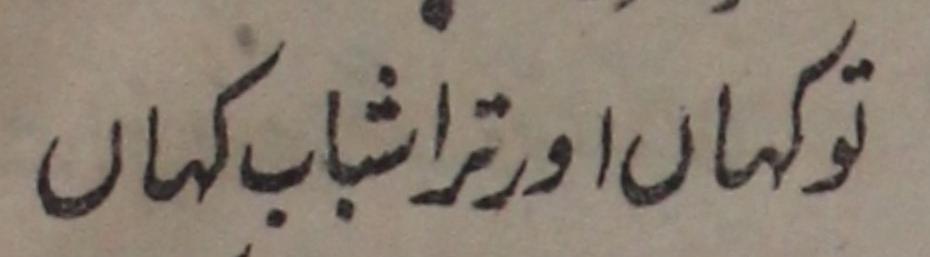 تو کہاں اور ترا شباب کہاں